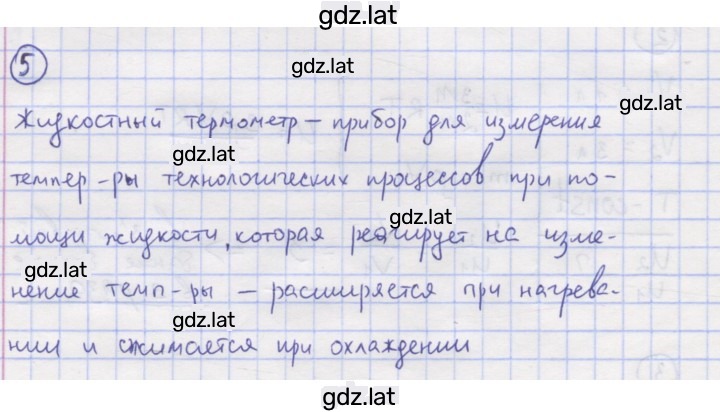 gdz.lat
5
gdz.lat
gdz.lat
Жидкостный термометр — прибор для измерения
gdz.lat
темпер-ры технологических процессов при по-
gdz.lat
мощи жидкости, которая реагирует на изме-
gdz.lat
нение темп-ры — расширяется при нагрева-
gdz.lat
нии и сжимается при охлаждении
gdz.lat